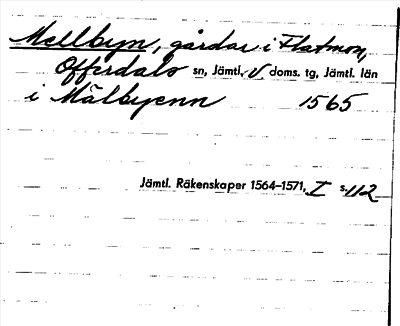 Mellbyn, gårdar i Flatmon,
Offerdals sn, Jämtl. V doms. tg, Jämtl. län
i Mälbyenn 1565
Jämtl. Räkenskaper 1564–1571, I s. 112